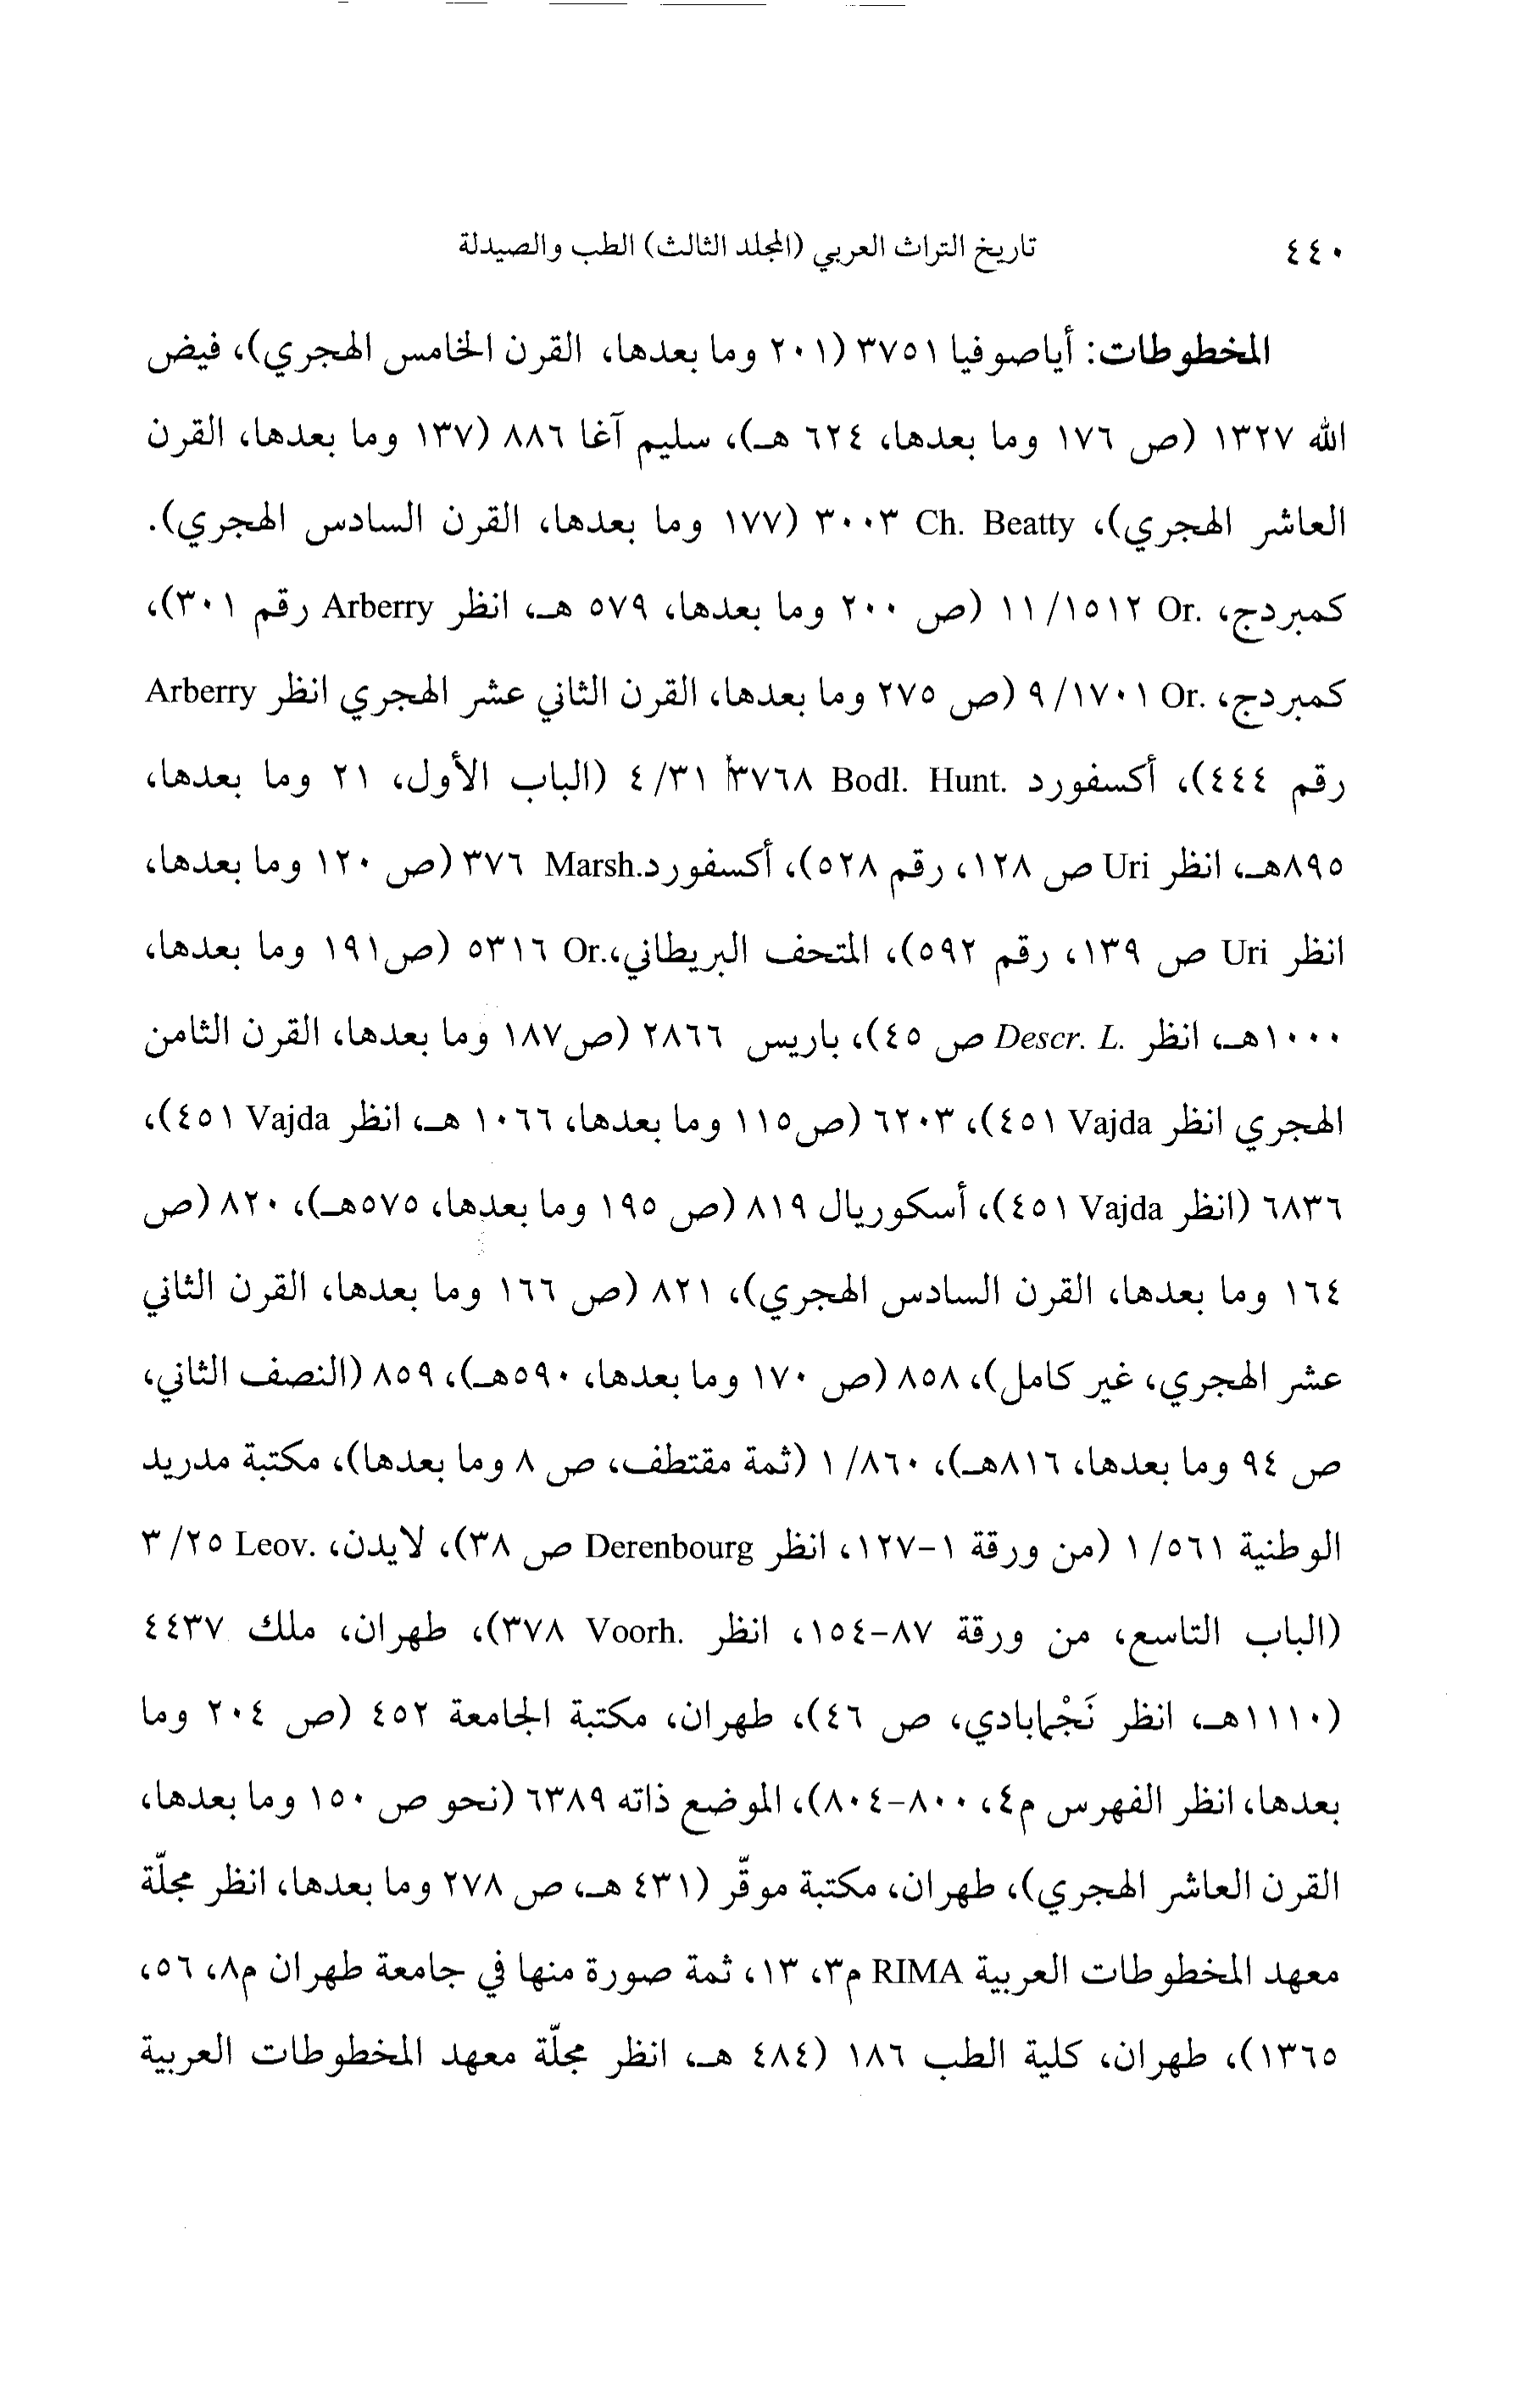 ٤٤٠ تاريخ التراث العربي (المجلد الثالث) الطب والصيدلة
المخطوطات: أياصوفيا ٣٧٥١ (٢٠١ وما بعدها، القرن الخامس الهجري)، فيض
الله ١٣٢٧ (ص ١٧٦ وما بعدها، ٦٢٤ هـ)، سليم آغا ٨٨٦ (١٣٧ وما بعدها، القرن
العاشر الهجري)، Ch. Beatty ٣٠٠٣ (١٧٧ وما بعدها، القرن السادس الهجري).
كمبردج، Or. ١٥١٢/ ١١ (ص ٢٠٠ وما بعدها، ٥٧٩ هـ، انظر Arberry رقم ٣٠١)،
كمبردج، Or. ١٧٠١/ ٩ (ص ٢٧٥ وما بعدها، القرن الثاني عشر الهجري انظر Arberry
رقم ٤٤٤)، أكسفورد Bodl. Hunt. ٣٧٦٨ ٣١/ ٤ (الباب الأول، ٢١ وما بعدها،
٨٩٥هـ، انظر Uri ص ١٢٨، رقم ٥٢٨)، أكسفورد.Marsh ٣٧٦ (ص ١٢٠ وما بعدها،
انظر Uri ص ١٣٩، رقم ٥٩٢)، المتحف البريطاني،.Or ٥٣١٦ (ص١٩١ وما بعدها،
١٠٠٠هـ، انظر Descr. L. ص ٤٥)، باريس ٢٨٦٦ (ص١٨٧ وما بعدها، القرن الثامن
الهجري انظر Vajda ٤٥١)، ٦٢٠٣ (ص١١٥ وما بعدها، ١٠٦٦ هـ، انظر Vajda ٤٥١)،
٦٨٣٦ (انظر Vajda ٤٥١)، أسكوريال ٨١٩ (ص ١٩٥ وما بعدها، ٥٧٥هـ)، ٨٢٠ (ص
١٦٤ وما بعدها، القرن السادس الهجري)، ٨٢١ (ص ١٦٦ وما بعدها، القرن الثاني
عشر الهجري، غير كامل)، ٨٥٨ (ص ١٧٠ وما بعدها، ٥٩٠هـ)، ٨٥٩ (النصف الثاني،
ص ٩٤ وما بعدها، ٨١٦هـ)، ٨٦٠/ ١ (ثمة مقتطف، ص ٨ وما بعدها)، مكتبة مدريد
الوطنية ٥٦١/ ١ (من ورقة ١-١٢٧، انظر Derenbourg ص ٣٨)، لايدن، Leov. ٢٥/ ٣
(الباب التاسع، من ورقة ٨٧-١٥٤، انظر Voorh. ٣٧٨)، طهران، ملك ٤٤٣٧
(١١١٠هـ، انظر نَجْمابادي، ص ٤٦)، طهران، مكتبة الجامعة ٤٥٢ (ص ٢٠٤ وما
بعدها، انظر الفهرس م٤، ٨٠٠-٨٠٤)، الموضع ذاته ٦٣٨٩ (نحو ص ١٥٠ وما بعدها،
القرن العاشر الهجري)، طهران، مكتبة موقّر (٤٣١ هـ، ص ٢٧٨ وما بعدها، انظر مجلّة
معهد المخطوطات العربية RIMA م٣، ١٣، ثمة صورة منها في جامعة طهران م٨، ٥٦،
١٣٦٥)، طهران، كلية الطب ١٨٦ (٤٨٤ هـ، انظر مجلّة معهد المخطوطات العربية